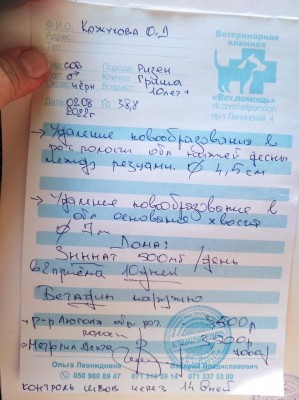 Ф.И.О. Кожухова О.Л
Адрес
Тел.
Вид соб Порода Ризен
Пол ♂ Кличка Гриша
Окрас чёрн Возраст 10лет
Дата 02.08 2022г Т: 38,8
Ветеринарная
клиника
«Вет.помощь»
vk.com/vetpomdon
пр-т Ленинский,
→ Удаление новообразования в
рот. полости обл нижней десны
между резцами. Ø 4,5 см
→ Удаление новообразование в
обл основание хвоста
Ø
Дома:
Зиннат 500мг /день
в 2 приёма 10 дней
Бетадин наружно
р-р Люголя обр рот.
полости
3500р
Метрогил Дента
Ольга Леонидовна
Владиславович
050 960 89 47
071 337 53 30
контроль швов через 14 дней